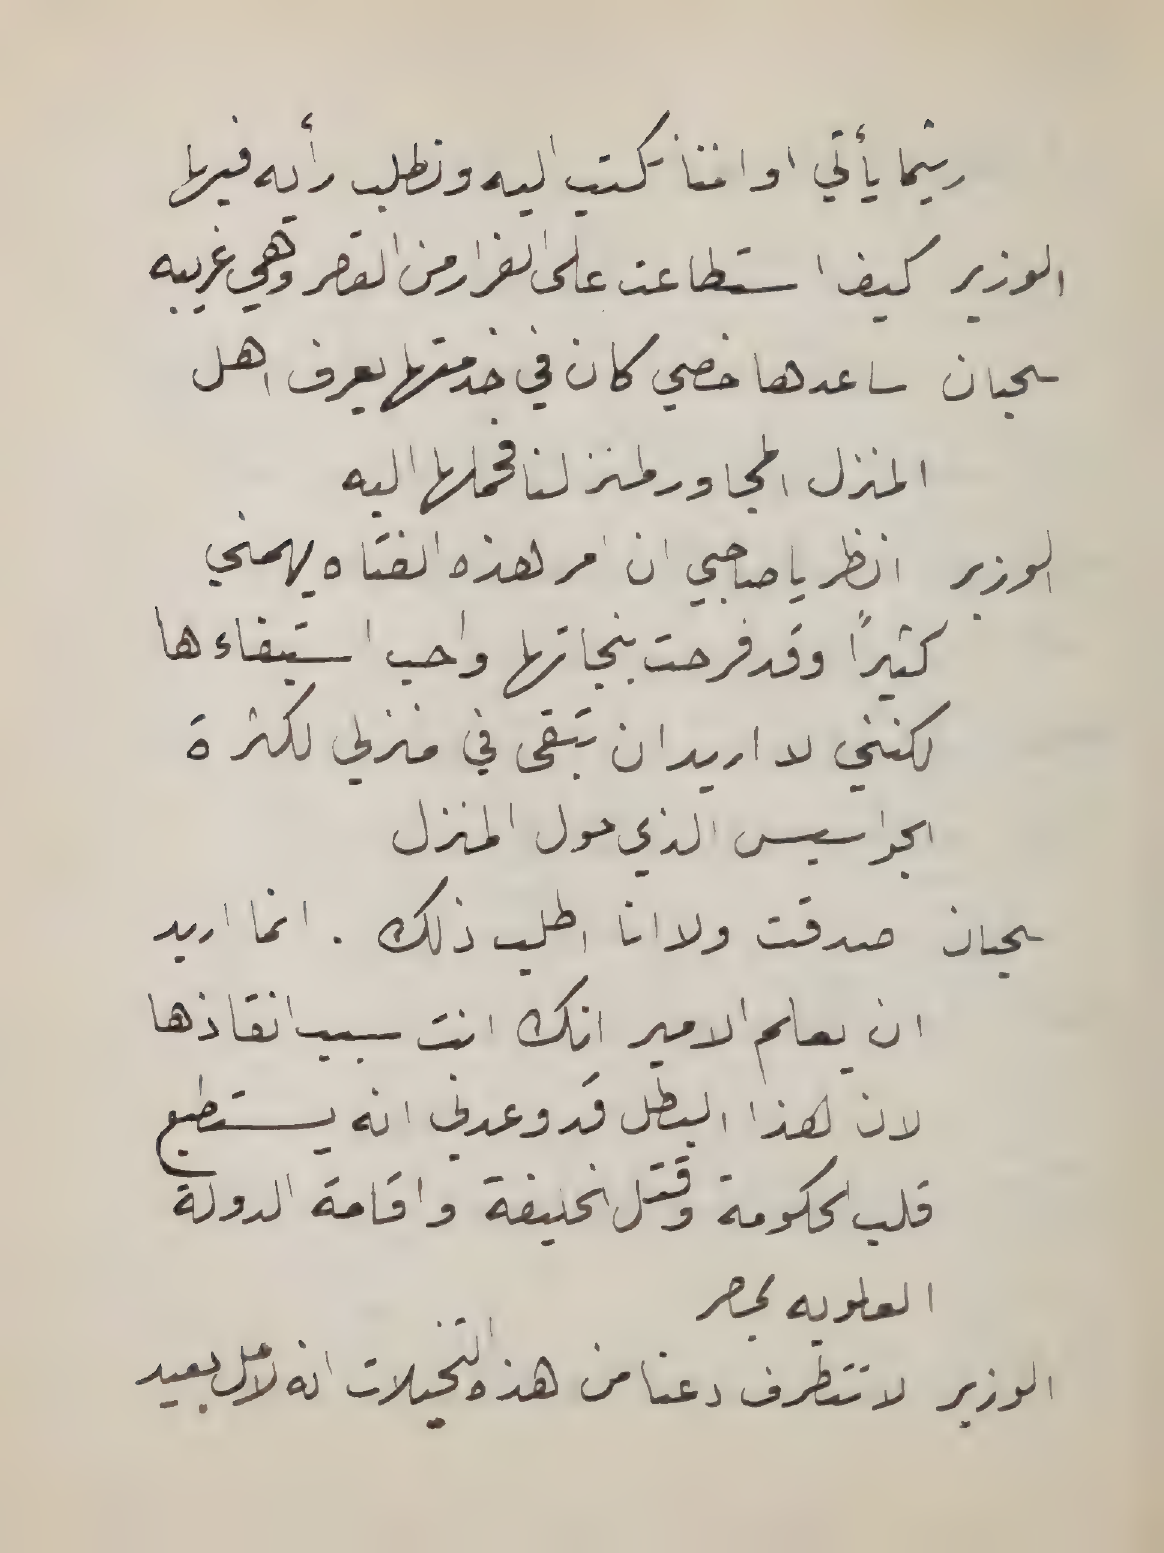 ريثما يأتي او اننا نكتب اليه ونطلب رأيه فيها
الوزير كيف استطاعت على الفرار من القصر وهي غريبه
سحبان ساعدها خصي كان في خدمتها يعرف اهل
المنزل المجاور لمنزلنا فحملها اليه
الوزير انظر يا صاحبي ان امر هذه الفتاه يهمني
كثيرًا وقد فرحت بنجاتها واحب استبقاءها
لكنني لا اريد ان تبقى في منزلي لكثرة
الجواسيس الذي حول المنزل
سحبان صدقت ولا انا اطلب ذلك . انما اريد
ان يعلم الامير انك انت سبب انقاذها
لان هذا البطل قد وعدني انه يستطيع
قلب الحكومة وقتل الخليفة واقامة الدولة
العلويه بمصر
الوزير لا تتطرف دعنا من هذه التخيلات انه لامل بعيد